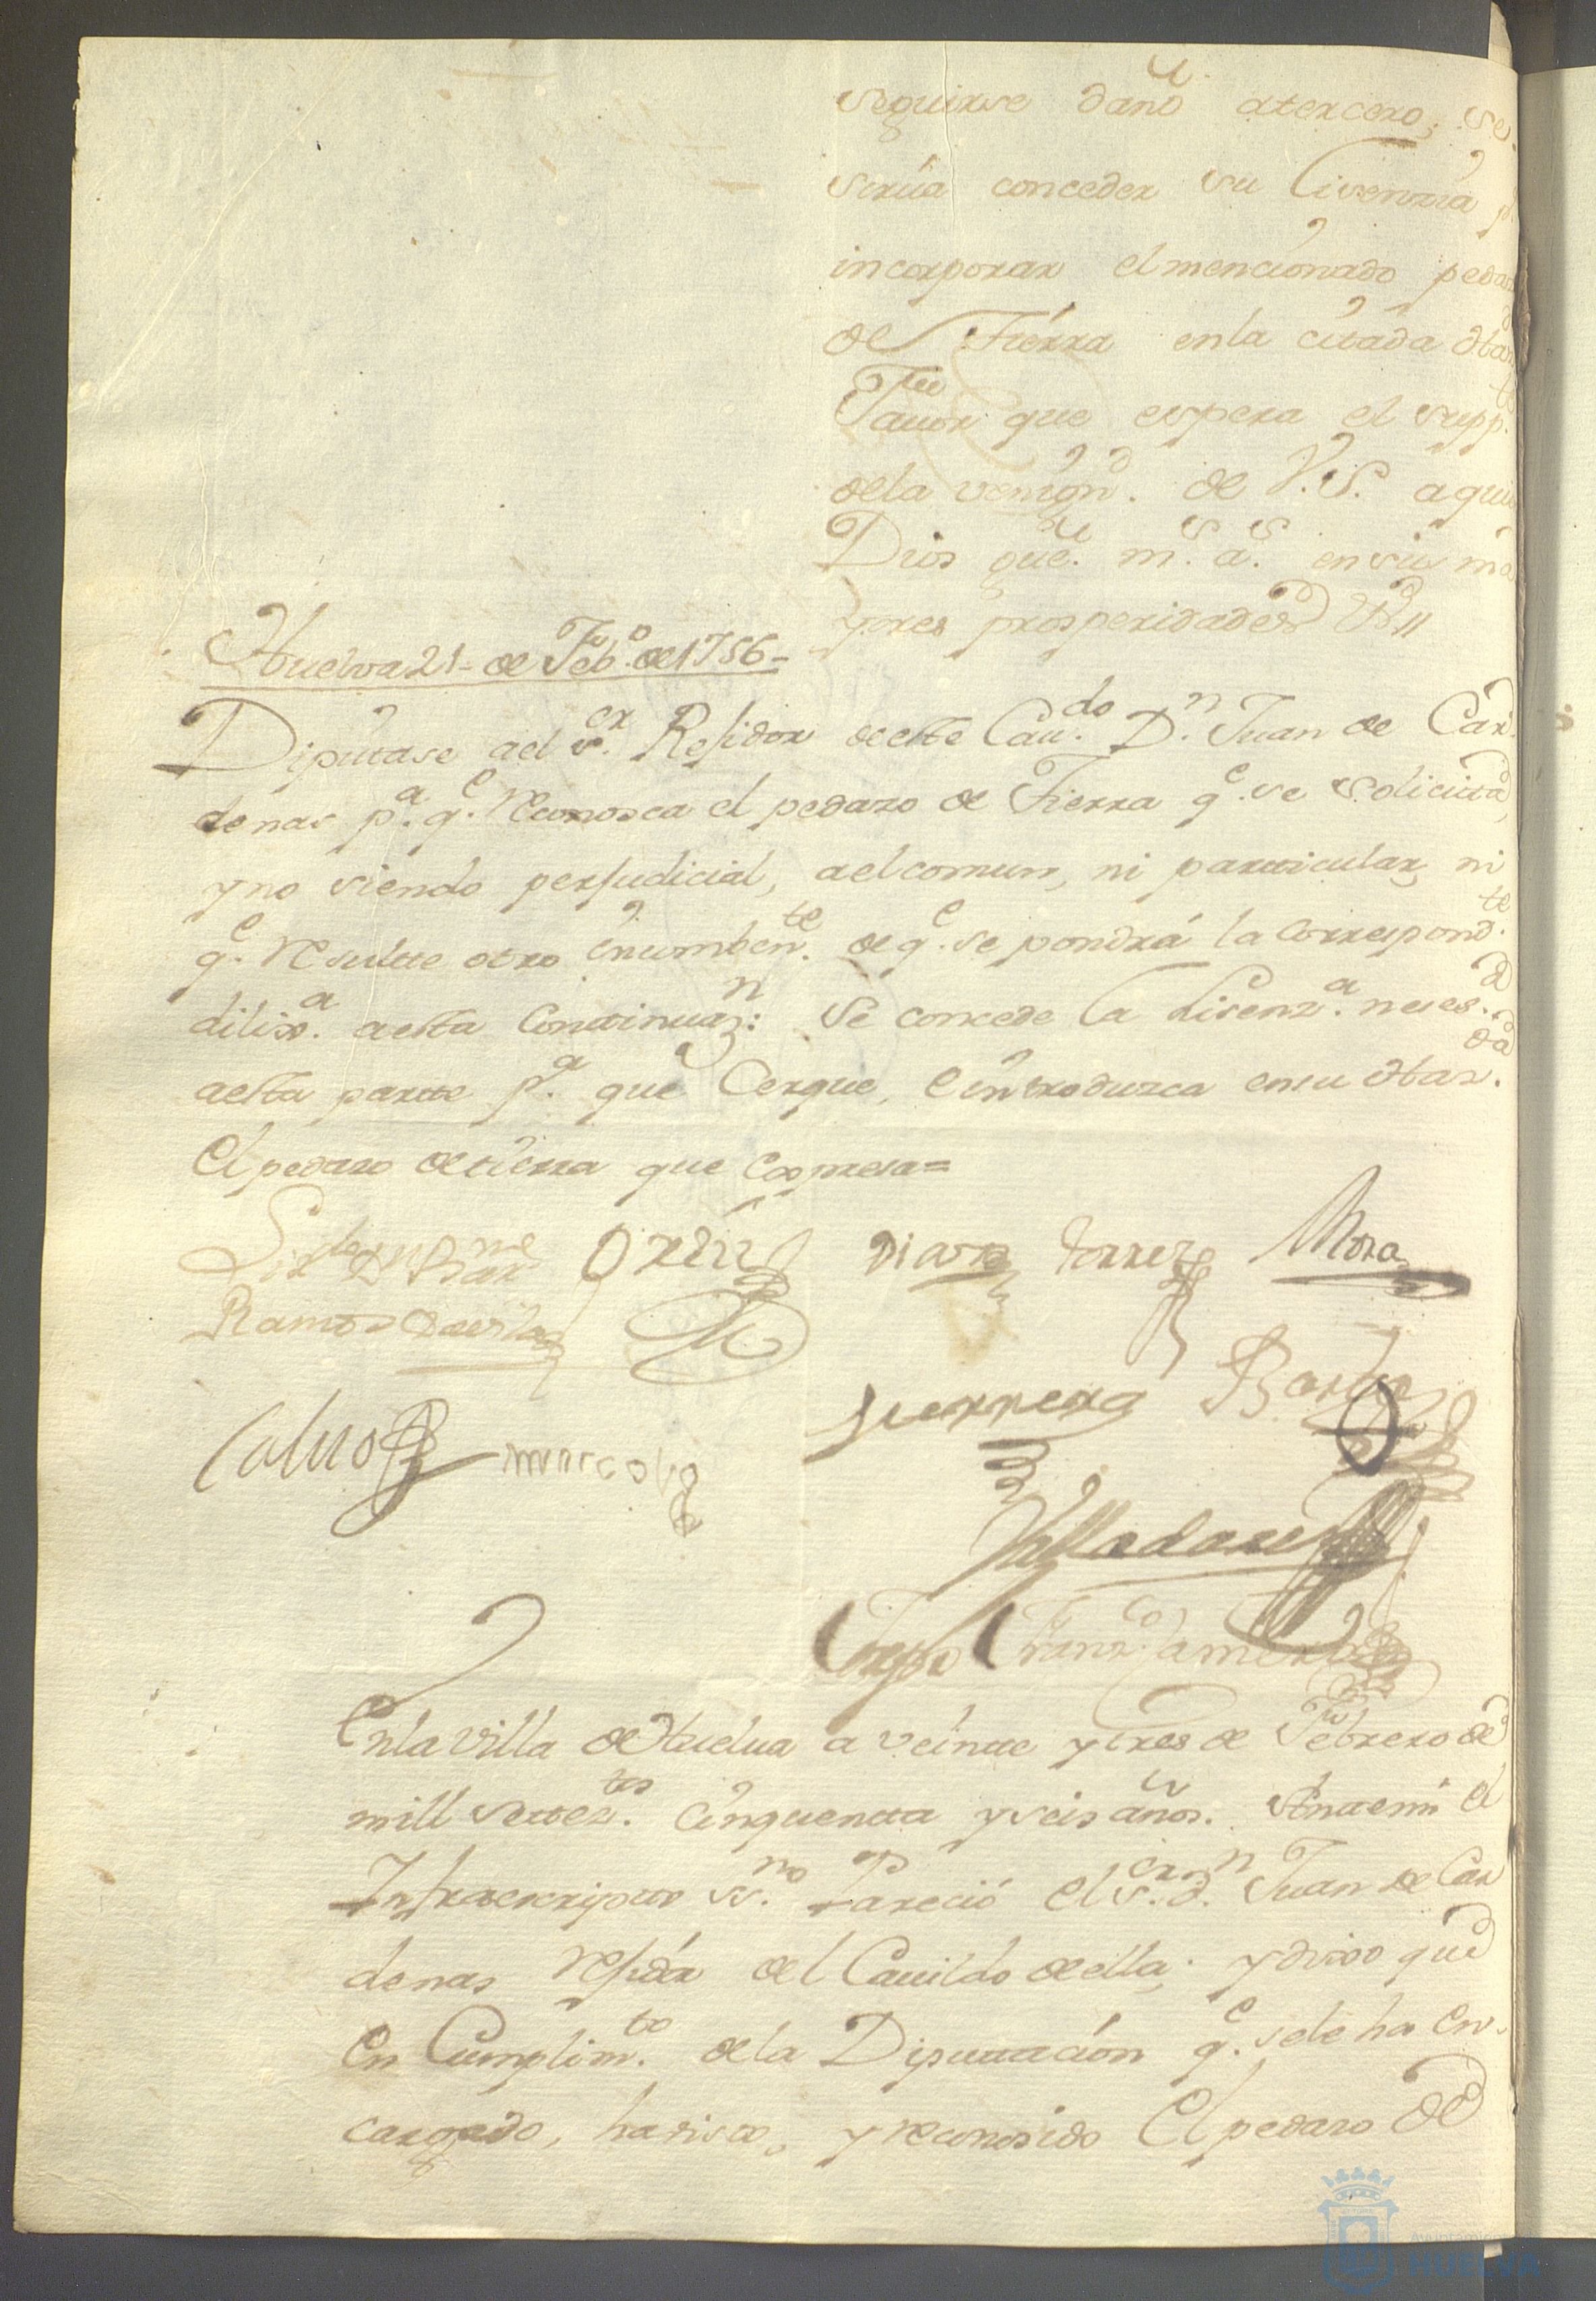 seguirse daño atercero; se
sirua conceder su Lisenzia
incorporar elmencionado
de Tierra enla citada
Fauor que espera el supp.te
dela venign.d de V.S. aquien
Dios gue. m.s a.s ensus ma
yores prosperidades
Huelva 21- de Feb.o de1756=
Diputase ael s.or Rexidor deeste Cau.do D.n Juan de Car
denas p.a q.e Reconosca el pedazo de Tierra q.e se solicita,
yno siendo perjudicial, aelcomun, ni particular, ni
q.e Resulte otro Yncombeni.te de q.e se pondrá la Correspond.te
dilix.a aesta Continuaz.n: Se concede la Lisenz.a neses.a
aesta parte p.a que Cerque, e introdusca ensu
El pedazo detierra que Expresa=
Ortiz Diaz Torres Mora
Ramos Davila
Herrera
Calvo
Valladares
Enla Villa deHuelua a veinte ytres de Febrero de
mill setez.tos Cinquenta yseis años. Antemi el
Infraescripto ss.no Pareció el s.or d.n Juan de Car
denas rexidor del Cauildo deella; ydixo que
En Cumplim.to dela Diputación q.e sele ha En-
cargado, havisto, yreconosido El pedazo de
Ayuntamiento
HUELVA